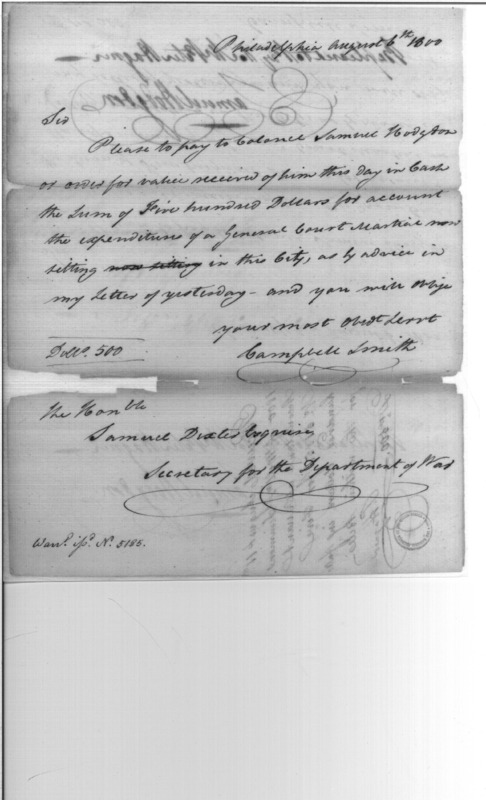 Philadelphia August 6th 1800
Sir
Please to pay to Colonel Samuel Hodgdon
or order for value received of him this day in Cash
the Sum of Five hundred Dollars for account
the expenditure of a General Court Martial now
sitting now sitting in this City, as by advice in
my Letter of yesterday - and you will oblige
your most Obedt Servt
Dollrs. 500
Campbell Smith
The Honble
Samuel Dexter Esquire
Secretary for the Department of War
Warrt. issd. No. 5185.